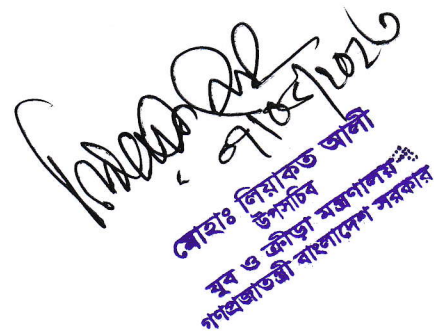 ০৭/০৫/২০২৬
মোহাঃ লিয়াকত আলী
উপসচিব
যুব ও ক্রীড়া মন্ত্রণালয়
গণপ্রজাতন্ত্রী বাংলাদেশ সরকার